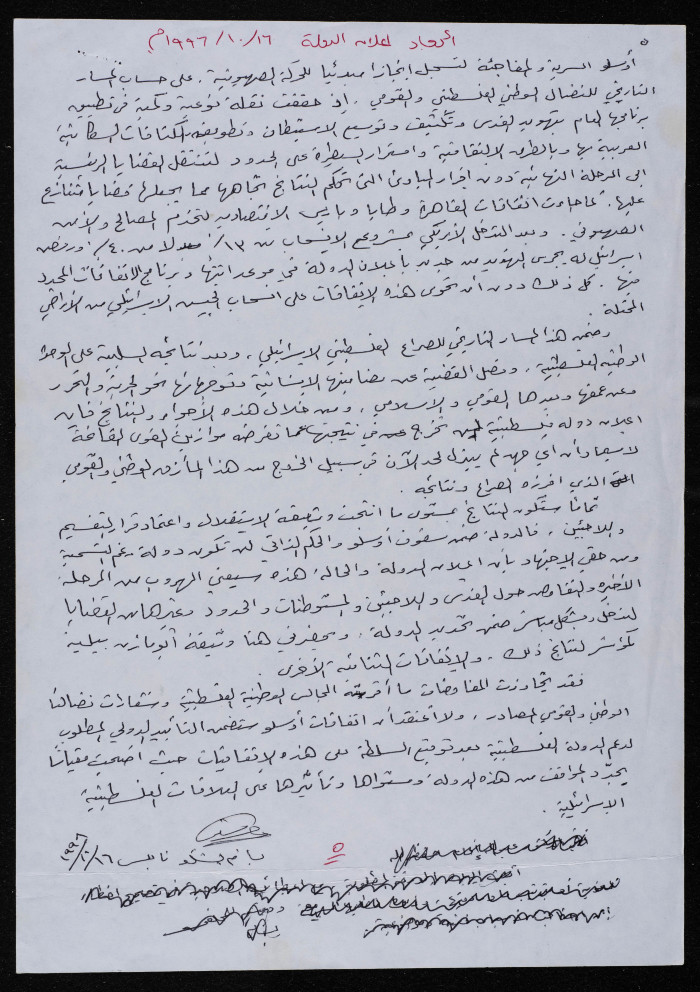 أبعاد إعلان الدولة ١٩٩٦/١٠/١٦م
٥
أوسلو السرية والمفاجئة لتسجل انجازا مبدئيا للحركة الصهيونية، على حساب المسار
التاريخي للنضال الوطني الفلسطيني والقومي. إذ حققت نقلة نوعية وكمية في تطبيق
برنامجها العام بتهويد القدس وتكثيف وتوسيع الاستيطان وتطويعه الكثافات السكانية
العربية بها وبالطرق الالتفافية واستمرار السيطرة على الحدود لتنتقل القضايا الرئيسية
الى المرحلة النهائية دون اقرار المبادئ التي تحكم النتائج اتجاهها مما يجعلها قضايا متنازع
عليها. كما جاءت اتفاقات القاهرة وطابا وباريس الاقتصادية لتخدم المصالح والأمن
الصهيوني. وبعد التدخل الأمريكي بمشروع الانسحاب من ١٣٪ بدلا من ٤٠٪ ورفض
اسرائيل له يجري التهديد من جديد بإعلان الدولة في موعد انتهاء برنامج الاتفاقات المحدد
منها. كل ذلك دون أن تحوى هذه الاتفاقات على انسحاب الجيش الإسرائيلي من الأراضي
المحتلة.
وضمن هذا المسار التاريخي للصراع الفلسطيني الاسرائيلي، وبعد نتائجه السلبية على الوحدة
الوطنية الفلسطينية، وفصل القضية عن مضامينها الانسانية وتوجهاتها نحو الحرية والتحرر
وعن عمقها وبعدها القومي والاسلامي، ومن خلال هذه الأجواء والنتائج فان
اعلان دولة فلسطينية لن تخرج في نتيجتها عما تفرضه موازين القوى القائمة
لاسيما وأن أي جهد لم يبذل لحد الآن في سبيل الخروج من هذا المأزق الوطني والقومي
الذي افرزه الصراع ونتائجه.
تماما ستكون النتائج بمستوى ما انتجت وثيقة الاستقلال واعتماد قرار التقسيم
واللاجئين. فالدولة ضمن سقوف أوسلو والحكم الذاتي لن تكون دولة رغم التسمية
ومن حقي الاجتهاد بأن اعلان الدولة والحالة هذه سيعني الهروب من المرحلة
الأخيرة والتفاوض حول القدس واللاجئين والمستوطنات والحدود وغيرها من القضايا
لتدخل وبشكل مباشر ضمن تحديد الدولة، ويحضرني هنا وثيقة أبو مازن بيلين
كمؤشر لنتائج ذلك، والاتفاقات الثنائية الأخرى.
فقد تجاوزت المفاوضات ما أقرته المجالس الوطنية الفلسطينية وشعارات نضالنا
الوطني والقومي المصادر، ولا أعتقد أن اتفاقات أوسلو ستضمن التأييد الدولي المطلوب
لدعم الدولة الفلسطينية بعد توقيع السلطة على هذه الاتفاقيات حيث أضحت مقياسا
يحدد المواقف من هذه الدولة ومستواها وتأثيرها على العلاقات الفلسطينية
الاسرائيلية.
بسام الشكعة نابلس ١٩٩٦/١٠/١٦
٥